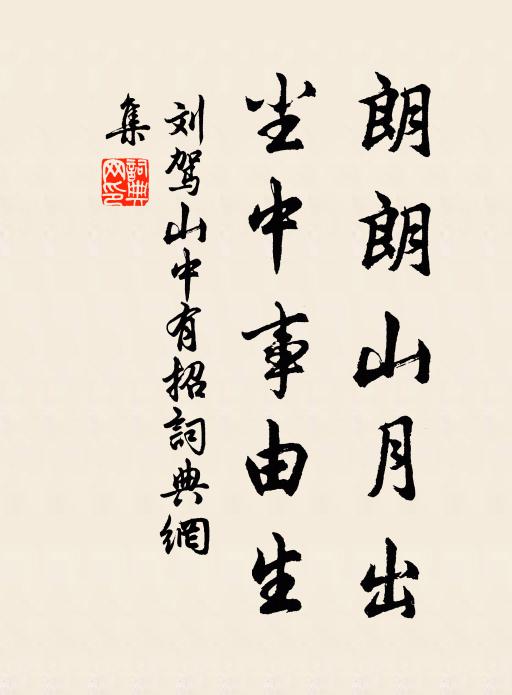 朗朗山月出
尘中事由生
刘驾山中有招詞典網
集
詞典網印